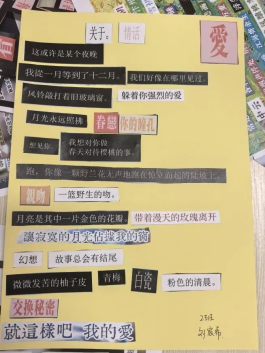 关于。情话
愛
这或许是某个夜晚
我從一月等到了十二月。我们好像在哪里见过。
风铃敲打着旧玻璃窗。躲着你强烈的爱
月光永远照拂 眷戀 你的瞳孔
想见你。
我想对你做
春天对待樱桃的事。
跑,你像一颗野兰花无声地
親吻 一篮野生的吻。
月亮是其中一片金色的花瓣。带着漫天的玫瑰离开
讓寂寞的月光佔據我的
幻想 故事总会有结尾
微微发苦的柚子皮 青梅 白瓷 粉色的清晨。
交换秘密
就這樣吧 我的愛